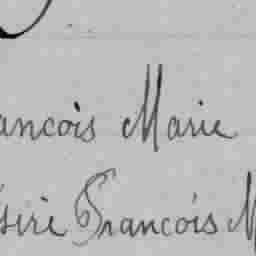 ancois Marie
siré François M